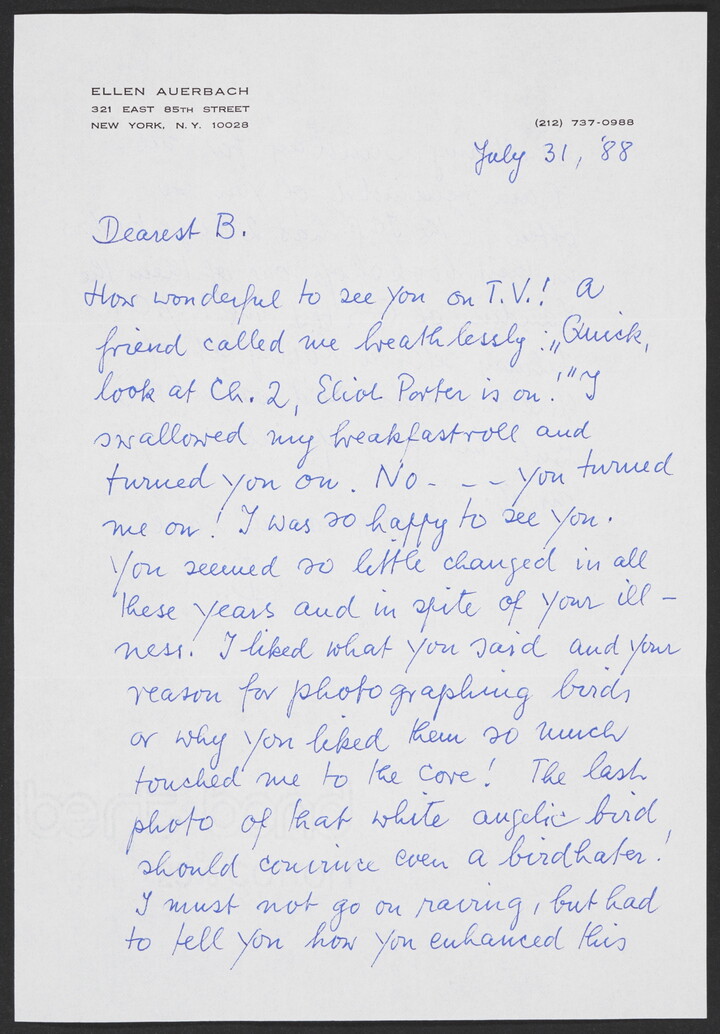 ELLEN AUERBACH
321 EAST 85TH STREET
NEW YORK, N.Y. 10028
(212) 737-0988
July 31, '88
Dearest B.
How wonderful to see you on T.V.! A
friend called me breathlessly: „Quick,
look at Ch. 2, Eliot Porter is on!" I
swallowed my breakfastroll and
turned you on. No - - - you turned
me on! I was so happy to see you.
You seemed so little changed in all
these years and in spite of your ill-
ness. I liked what you said and your
reason for photographing birds
or why you liked them so much
touched me to the core! The last
photo of that white angelic bird,
should convince even a birdhater!
I must not go on raving, but had
to tell you how you enhanced this